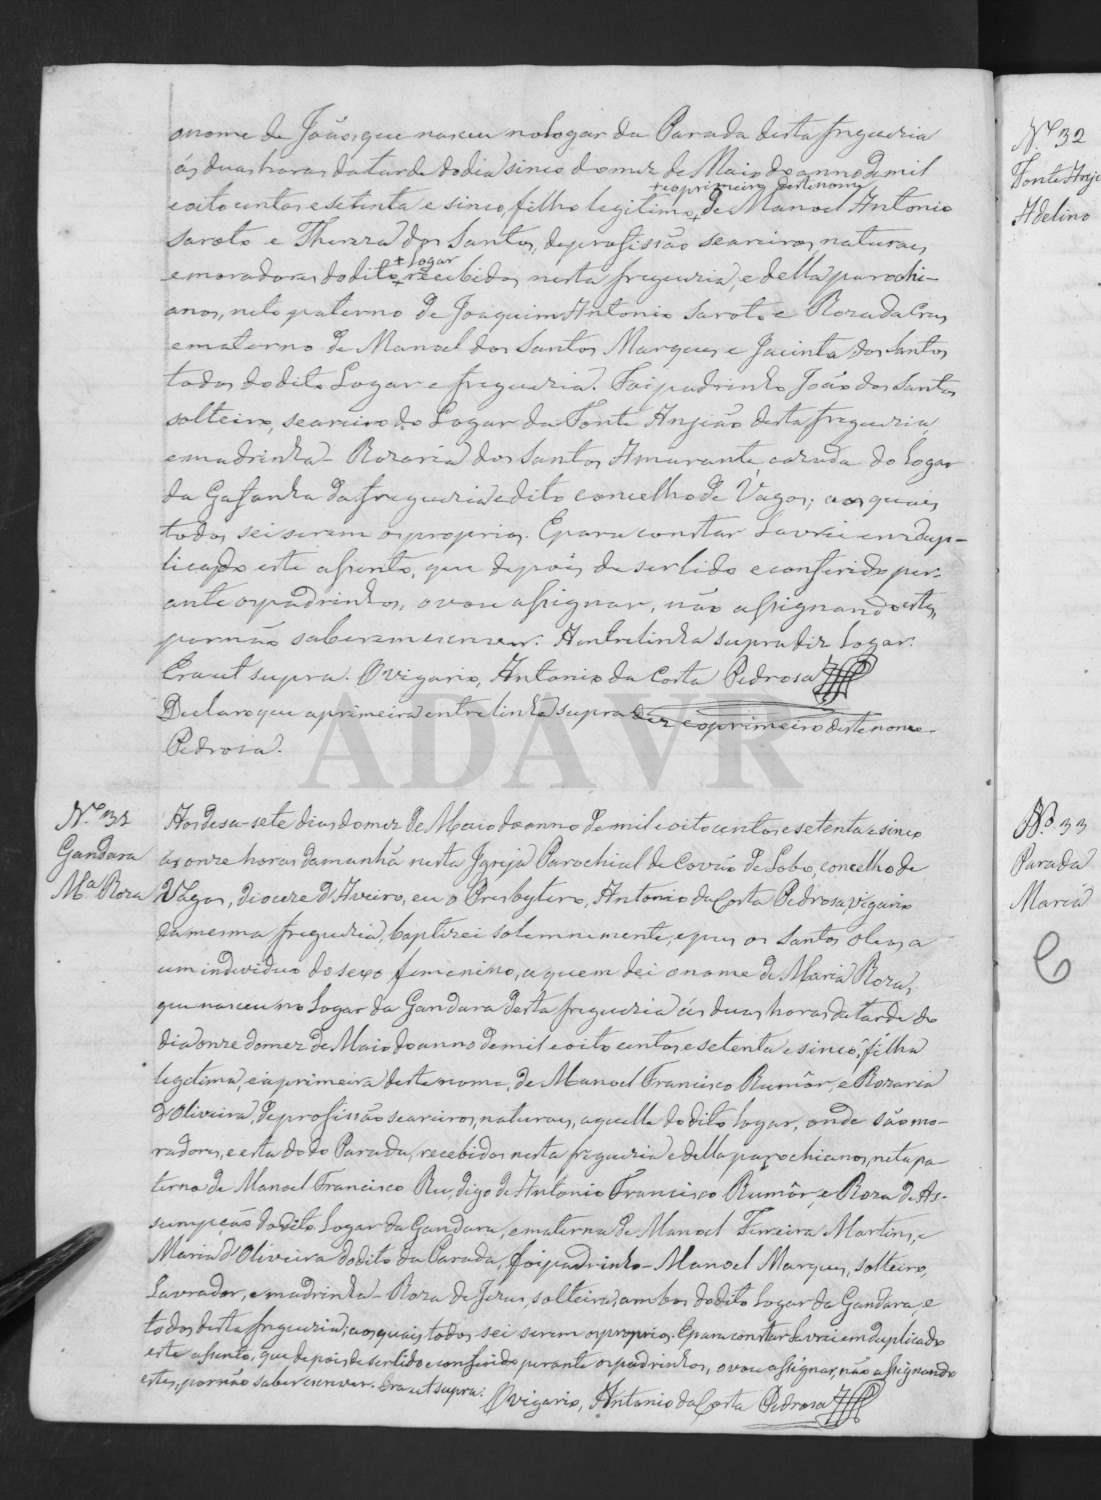 o nome de João, que nasceu no logar da Parada desta freguezia
ás duas horas da tarde do dia sinco do mez de Maio do anno de mil
+ e o primeiro deste nome
e oito centos e setenta e sinco, filho legitimo + de Manoel Antonio
Saroto e Thereza dos Santos, de profissão seareiros, naturaes
+ logar
e moradores do dito + recebidos nesta freguezia, e della parochi-
anos, neto paterno de Joaquim Antonio Saroto e Roza da Cruz
e materno de Manoel dos Santos Marques e Jacinta dos Santos
todos do dito Logar e freguezia. Foi padrinho João dos Santos
solteiro, seareiro do Logar da Fonte Anjião desta freguezia
e madrinha - Rozaria dos Santos Amarante, cazada do logar
da Gafanha da freguezia e dito concelho de Vagos; aos quaes
todos sei serem os proprios. E para constar lavrei em dup-
licado este assento, que depois de ser lido e conferido per-
ante os padrinhos, o vou assignar, não assignando estes,
por não saberem escrever. A entrelinha supra diz logar.
Era ut supra. O vigario, Antonio da Costa Pedrosa
Declaro que a primeira entrelinha supra diz e o primeiro deste nome.
Pedrosa.
ADAVR
Nº 32
Gandara
Mª Roza
Aos desa-sete dias do mez de Maio do anno de mil e oito centos e setenta e sinco
ás onze horas da manhã nesta Igreja Parochial de Covão de Lobo, concelho de
Vagos, dioceze d'Aveiro, eu o Presbytero, Antonio da Costa Pedrosa, vigario
da mesma freguezia, baptizei solemnemente, e puz os Santos Oleos a
um individuo do sexo femenino, a quem dei o nome de Maria Roza,
que nasceu no Logar da Gandara desta freguezia ás duas horas da tarde do
dia onze do mez de Maio do anno de mil e oito centos e setenta e sinco, filha
legitima, e a primeira deste nome, de Manoel Francisco Rumôr, e Rozaria
d'Oliveira, de profissão seareiros, naturaes, aquelle do dito logar, onde são mo-
radores, e esta do da Parada, recebidos nesta freguezia e della parochianos, neta pa-
terna de Manoel Francisco Ru, digo de Antonio Francisco Rumôr, e Roza de As-
sumpção do dito Logar da Gandara, e materna de Manoel Ferreira Martins, e
Maria d'Oliveira do dito da Parada, foi padrinho - Manoel Marques, solteiro,
Lavrador, e madrinha - Roza de Jezus, solteira, ambos do dito Logar da Gandara, e
todos desta freguezia; aos quaes todos sei serem os proprios. E para constar lavrei em duplicado
este assento, que depois de ser lido e conferido perante os padrinhos, o vou assignar, não assignando
estes, por não saber escrever. Era ut supra. O vigario, Antonio da Costa Pedrosa
Nº 32
Fonte Anje
Adelino
Nº 33
Parada
Maria